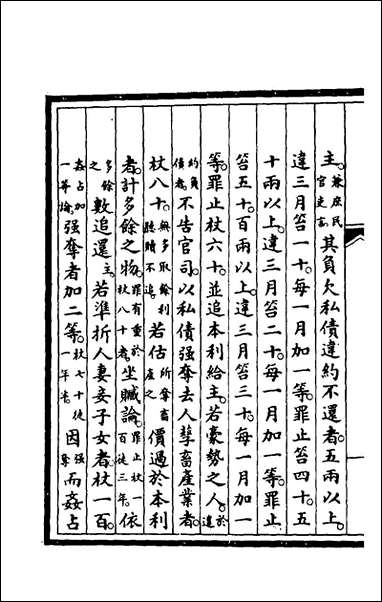 主。兼庶民官吏言。其負欠私債違約不還者。五兩以上。
違三月笞一十。每一月加一等。罪止笞四十。五
十兩以上。違三月笞二十。每一月加一等。罪止
笞五十。百兩以上。違三月笞三十。每一月加一
等。罪止杖六十。並追本利給主。若豪勢之人。於違
約負債者。不告官司。以私債強奪去人孳畜產業者。
杖八十。無多取餘利聽贖不追。若估所奪畜產之價過於本利
者。計多餘之物。罪有重於杖八十者。坐贓論。罪止杖一百徒三年。依
多餘之數追還。主。若準折人妻妾子女者。杖一百。
姦占加一等論。強奪者加二等。杖七十徒一年半。因強奪而姦占